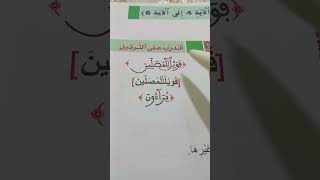 الآية 4 إلى الآية 6)
أتدرب على الترتيل
﴿فَوَيْلٌ لِّلْمُصَلِّينَ﴾
[فَوَيْلُلِّلْمُصَلِّينَ]
﴿يُرَآءُونَ﴾
غيرها.